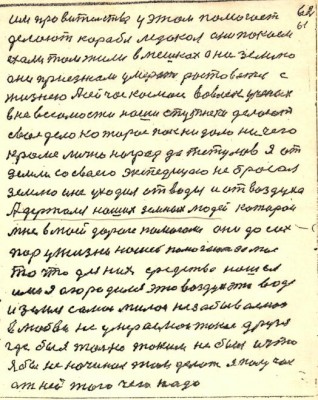 62
61
им правительство у этом помогает
делают корабл ледокол они поком
ехали там жили в мешках она землю
они признали умерать ростовется с
жизнею А сейчас космос вовлек ученых
в невесомости наши спутнеки делают
свое дело которое пок ни дало ни чего
кроме лично наград да тетулов Я от
земли со своего экспедицию не бросал
землю и не уходил от воды и от воздуха
А держался наших земных людей которой
мне в моей дороге помогали они до сих
пор у жизнь нашей помогают
то что для них средство нашел
имя Я огородился это воздух это вода
и земля самое милое незабываемое
в любвы не умераемое такое друзя
где был таково таким не был и что
Я бы не начинал этом делат Я получал
от ней того чего надо